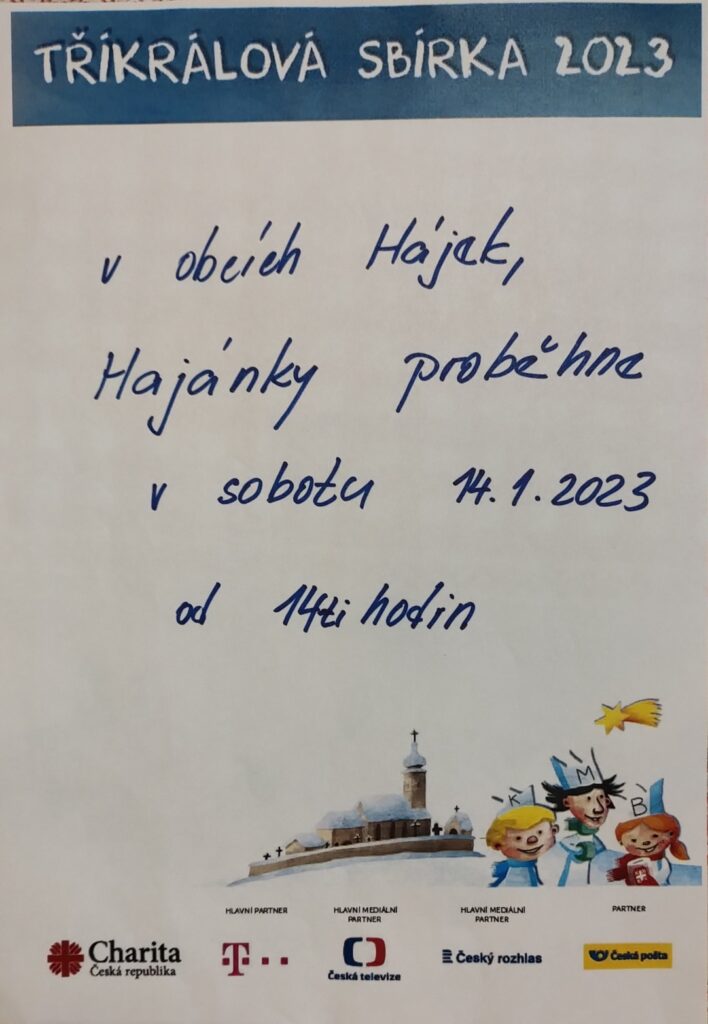 TŘÍKRÁLOVÁ SBÍRKA 2023
v obcích Hájek,
Hajánky proběhne
v sobotu 14.1.2023
od 14ti hodin
K M B
HLAVNÍ PARTNER
T
HLAVNÍ MEDIÁLNÍ
PARTNER
Česká televize
HLAVNÍ MEDIÁLNÍ
PARTNER
Český rozhlas
PARTNER
Česká pošta
Charita
Česká republika